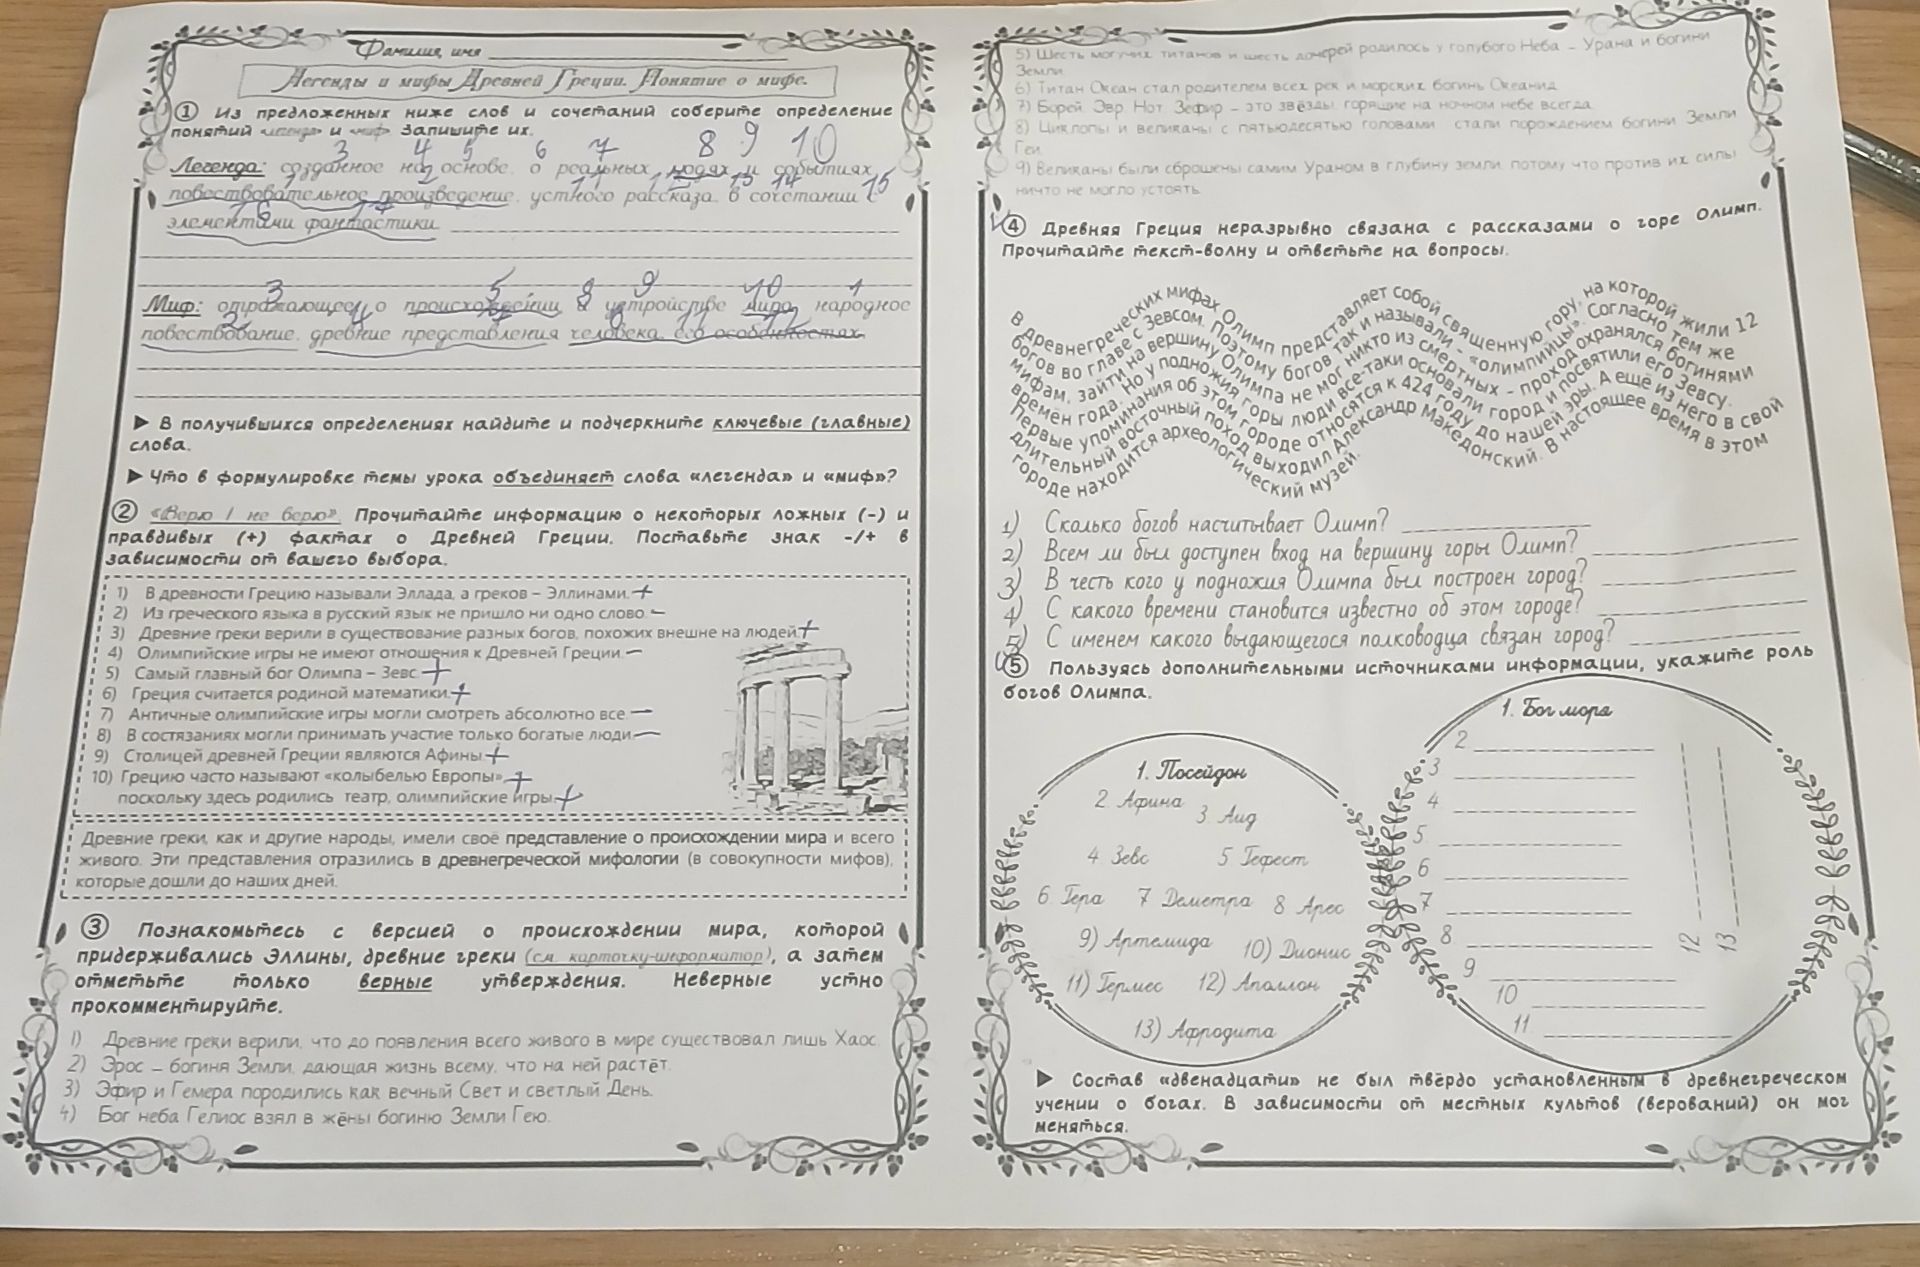 Фамилия, имя
Легенды и мифы Древней Греции. Понятие о мифе.
① Из предложенных ниже слов и сочетаний соберите определение
понятий «легенда» и «миф». Запишите их.
3 4 5 6 7 8 9 10
Легенда: созданное на основе, о реальных людях и событиях,
1 2 11 12 13 14 15
повествовательное произведение, устного рассказа, в сочетании с
элементами фантастики.
3 5 8 9 10 1
Миф: отражающее, о происхождении и устройстве мира, народное
повествование, древние представления человека, его особенностях.
► В получившихся определениях найдите и подчеркните ключевые (главные)
слова.
► Что в формулировке темы урока объединяет слова «легенда» и «миф»?
② «Верю / не верю». Прочитайте информацию о некоторых ложных (-) и
правдивых (+) фактах о Древней Греции. Поставьте знак -/+ в
зависимости от вашего выбора.
1) В древности Грецию называли Эллада, а греков – Эллинами. +
2) Из греческого языка в русский язык не пришло ни одно слово. –
3) Древние греки верили в существование разных богов, похожих внешне на людей. +
4) Олимпийские игры не имеют отношения к Древней Греции. –
5) Самый главный бог Олимпа – Зевс. +
6) Греция считается родиной математики. +
7) Античные олимпийские игры могли смотреть абсолютно все. –
8) В состязаниях могли принимать участие только богатые люди. –
9) Столицей древней Греции являются Афины. +
10) Грецию часто называют «колыбелью Европы», +
поскольку здесь родились театр, олимпийские игры. +
Древние греки, как и другие народы, имели своё представление о происхождении мира и всего
живого. Эти представления отразились в древнегреческой мифологии (в совокупности мифов),
которые дошли до наших дней.
③ Познакомьтесь с версией о происхождении мира, которой
придерживались Эллины, древние греки (см. карточку-информатор), а затем
отметьте только верные утверждения. Неверные устно
прокомментируйте.
1) Древние греки верили, что до появления всего живого в мире существовал лишь Хаос.
2) Эрос – богиня Земли, дающая жизнь всему, что на ней растёт.
3) Эфир и Гемера породились как вечный Свет и светлый День.
4) Бог неба Гелиос взял в жёны богиню Земли Гею.
5) Шесть могучих титанов и шесть дочерей родилось у голубого Неба – Урана и богини
Земли.
6) Титан Океан стал родителем всех рек и морских богинь Океанид.
7) Борей, Эвр, Нот, Зефир – это звёзды, горящие на ночном небе всегда.
8) Циклопы и великаны с пятьюдесятью головами стали порождением богини Земли
Геи.
9) Великаны были сброшены самим Ураном в глубину земли, потому что против их силы
ничто не могло устоять.
④ Древняя Греция неразрывно связана с рассказами о горе Олимп.
Прочитайте текст-волну и ответьте на вопросы.
В древнегреческих мифах Олимп представляет собой священную гору, на которой жили 12
богов во главе с Зевсом. Поэтому богов так и называли – «олимпийцы». Согласно тем же
мифам, зайти на вершину Олимпа не мог никто из смертных – проход охранялся богинями
времён года. Но у подножия горы люди все-таки основали город и посвятили его Зевсу.
Первые упоминания об этом городе относятся к 424 году до нашей эры. А ещё из него в свой
длительный восточный поход выходил Александр Македонский. В настоящее время в этом
городе находится археологический музей.
1) Сколько богов насчитывает Олимп?
2) Всем ли был доступен вход на вершину горы Олимп?
3) В честь кого у подножия Олимпа был построен город?
4) С какого времени становится известно об этом городе?
5) С именем какого выдающегося полководца связан город?
⑤ Пользуясь дополнительными источниками информации, укажите роль
богов Олимпа.
1. Посейдон
2. Афина
3. Аид
4. Зевс
5. Гефест
6. Гера
7. Деметра
8. Арес
9) Артемида
10) Дионис
11) Гермес
12) Аполлон
13) Афродита
1. Бог моря
2
3
4
5
6
7
8
9
10
11
12
13
► Состав «двенадцати» не был твёрдо установленным в древнегреческом
учении о богах. В зависимости от местных культов (верований) он мог
меняться.